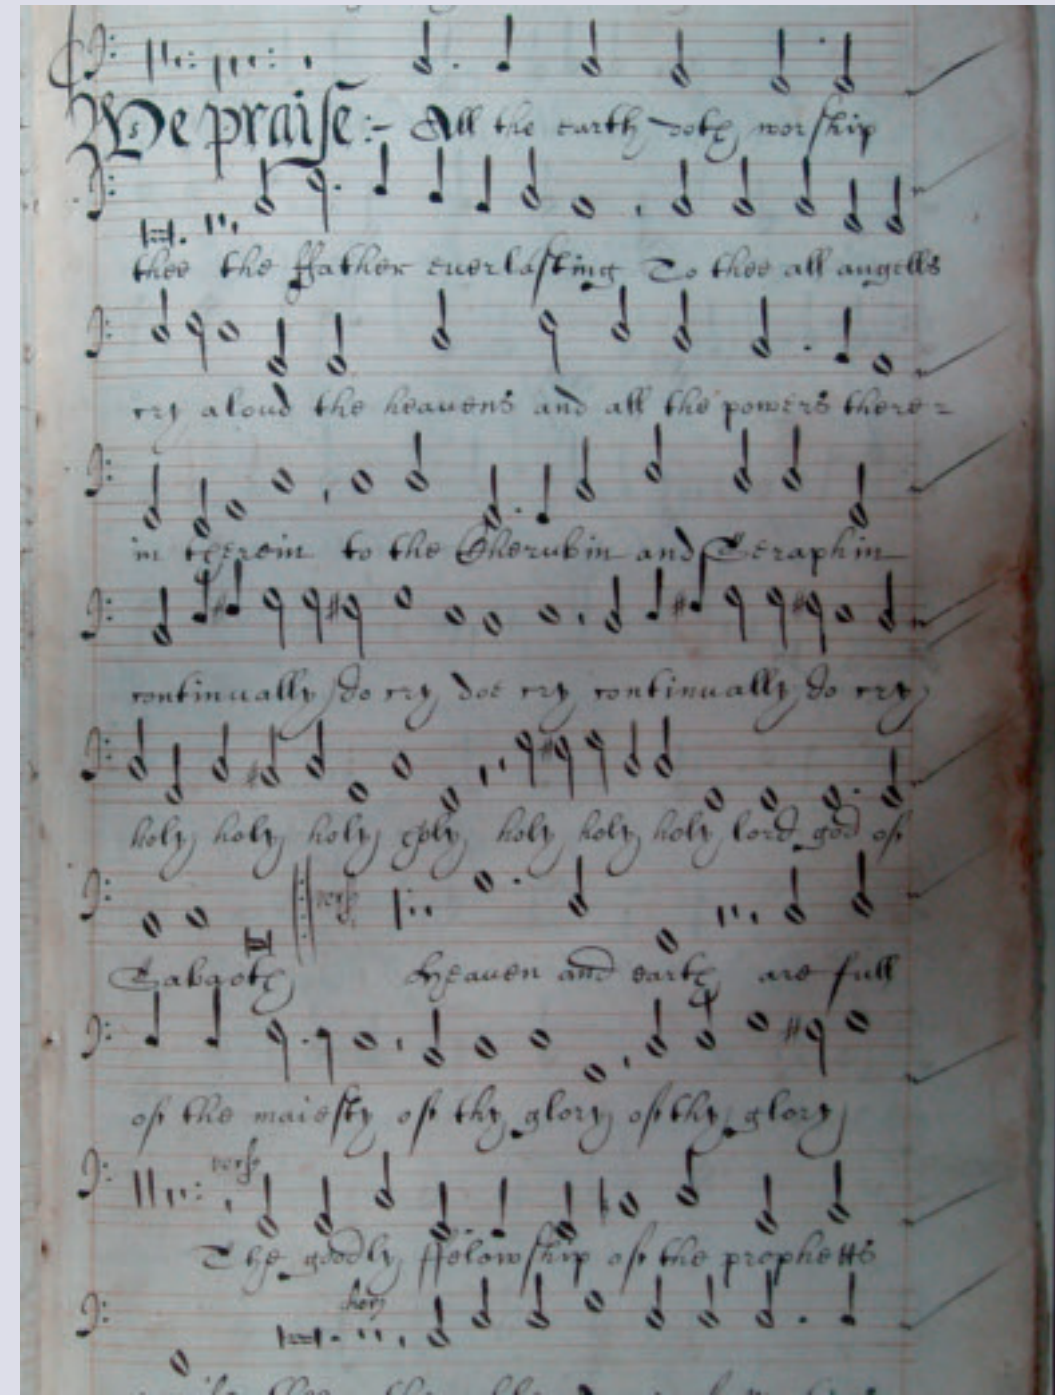 We praise:- All the earth doth worship
thee the ffather euerlasting To thee all angells
cry aloud the heauens and all the powers there=
in therein to the Cherubin and Seraphin
continually do cry doe cry continually do cry
holy holy holy holy holy holy holy lord god of
vers
Sabaoth Heauen and earth are full
of the maiesty of thy glory of thy glory
vers
The goodly ffelowship of the prophetts